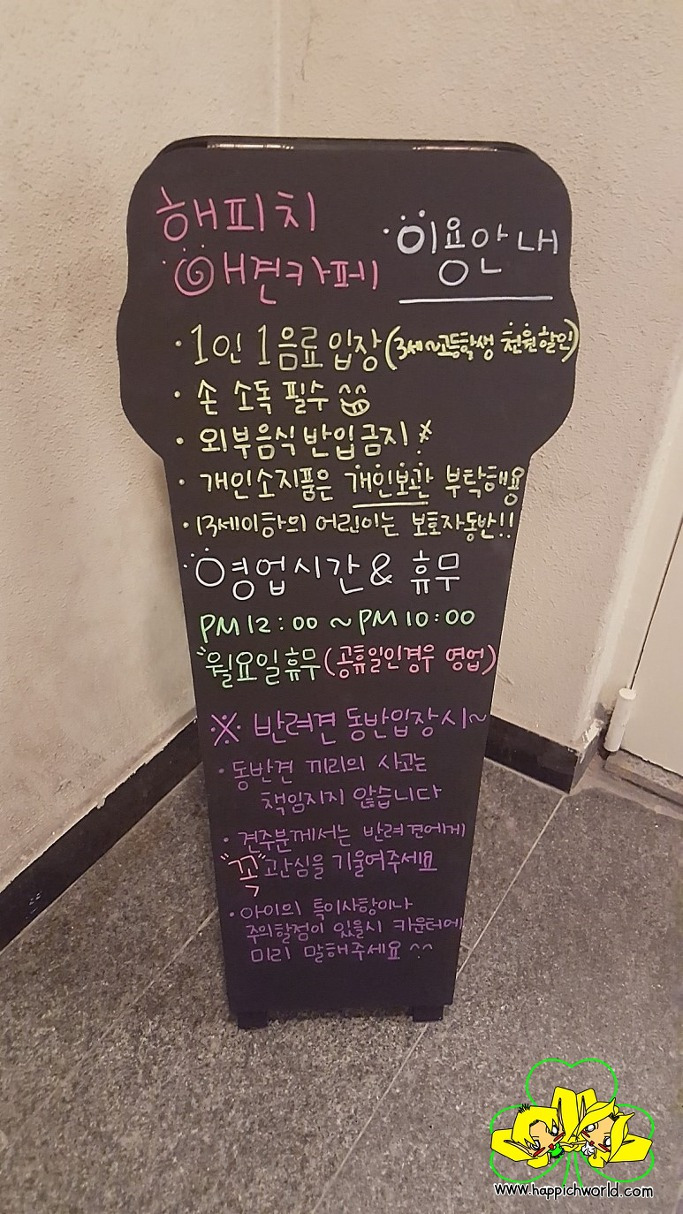 해피치
애견카페 이용안내
· 1인 1음료 입장(3세~고등학생 천원할인)
· 손 소독 필수
· 외부음식 반입금지
· 개인소지품은 개인보관 부탁해용
· 13세이하의 어린이는 보호자동반!!
영업시간 & 휴무
PM 12:00 ~ PM 10:00
월요일휴무(공휴일인경우 영업)
※ 반려견 동반입장시~
· 동반견 끼리의 사고는
책임지지 않습니다
· 견주분께서는 반려견에게
"꼬" 관심을 기울여주세요
· 아이의 특이사항이나
주의할점이 있을시 카운터에
미리 말해주세요 ^^
www.happichworld.com